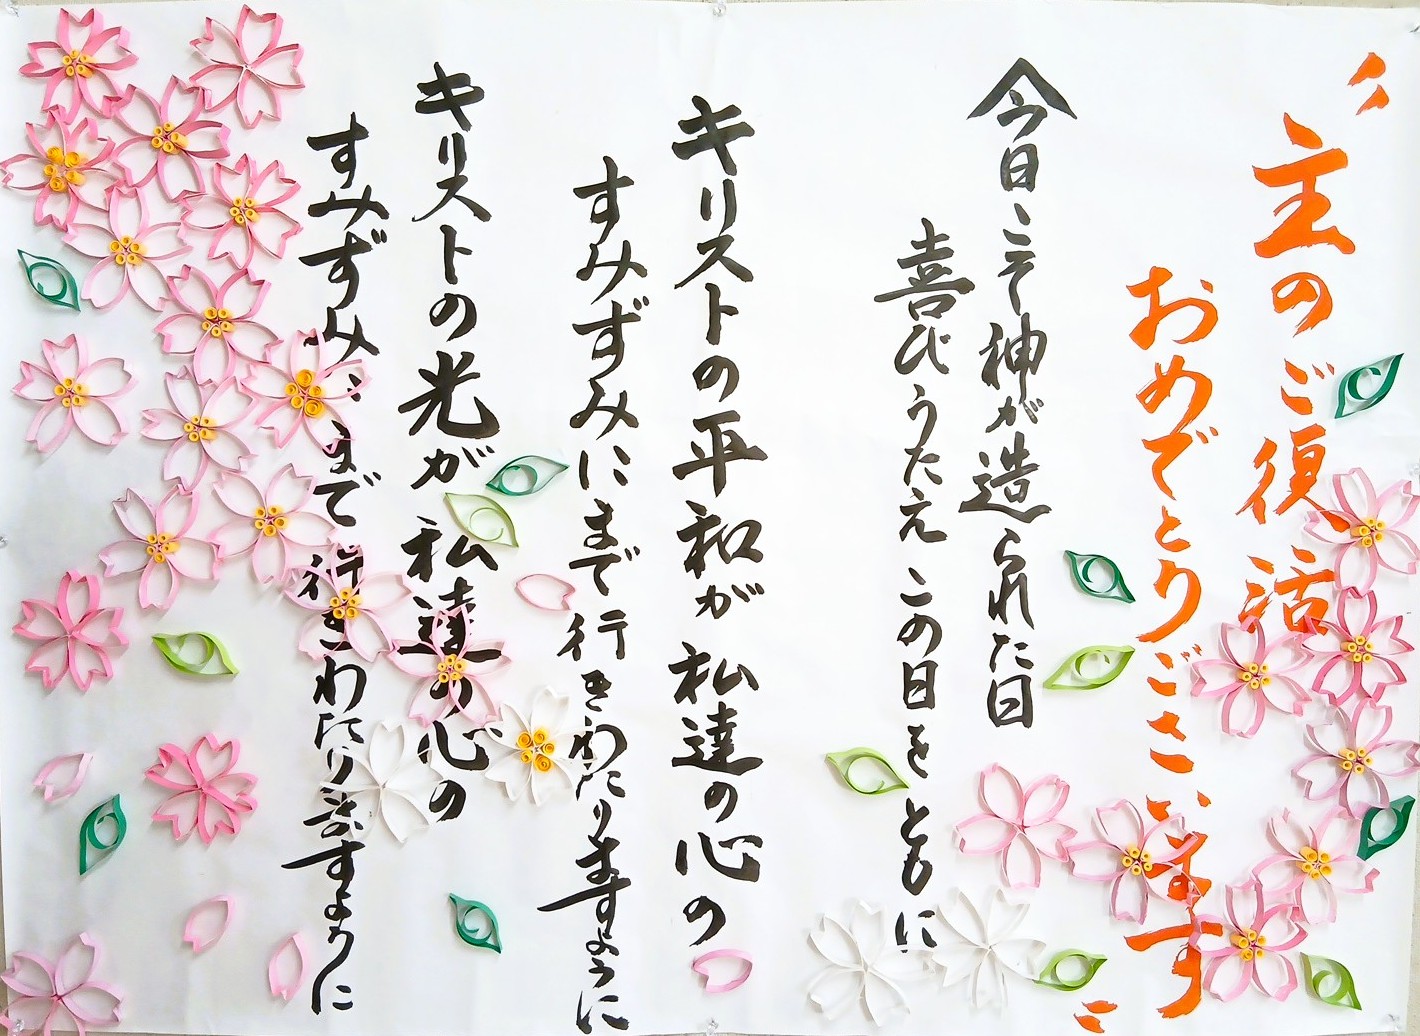 〝主のご復活
おめでとうございます〟
今日こそ神が造られた日
喜びうたえ この日をともに
キリストの平和が 私達の心の
すみずみにまで 行きわたりますように
キリストの光が 私達の心の
すみずみにまで 行きわたりますように